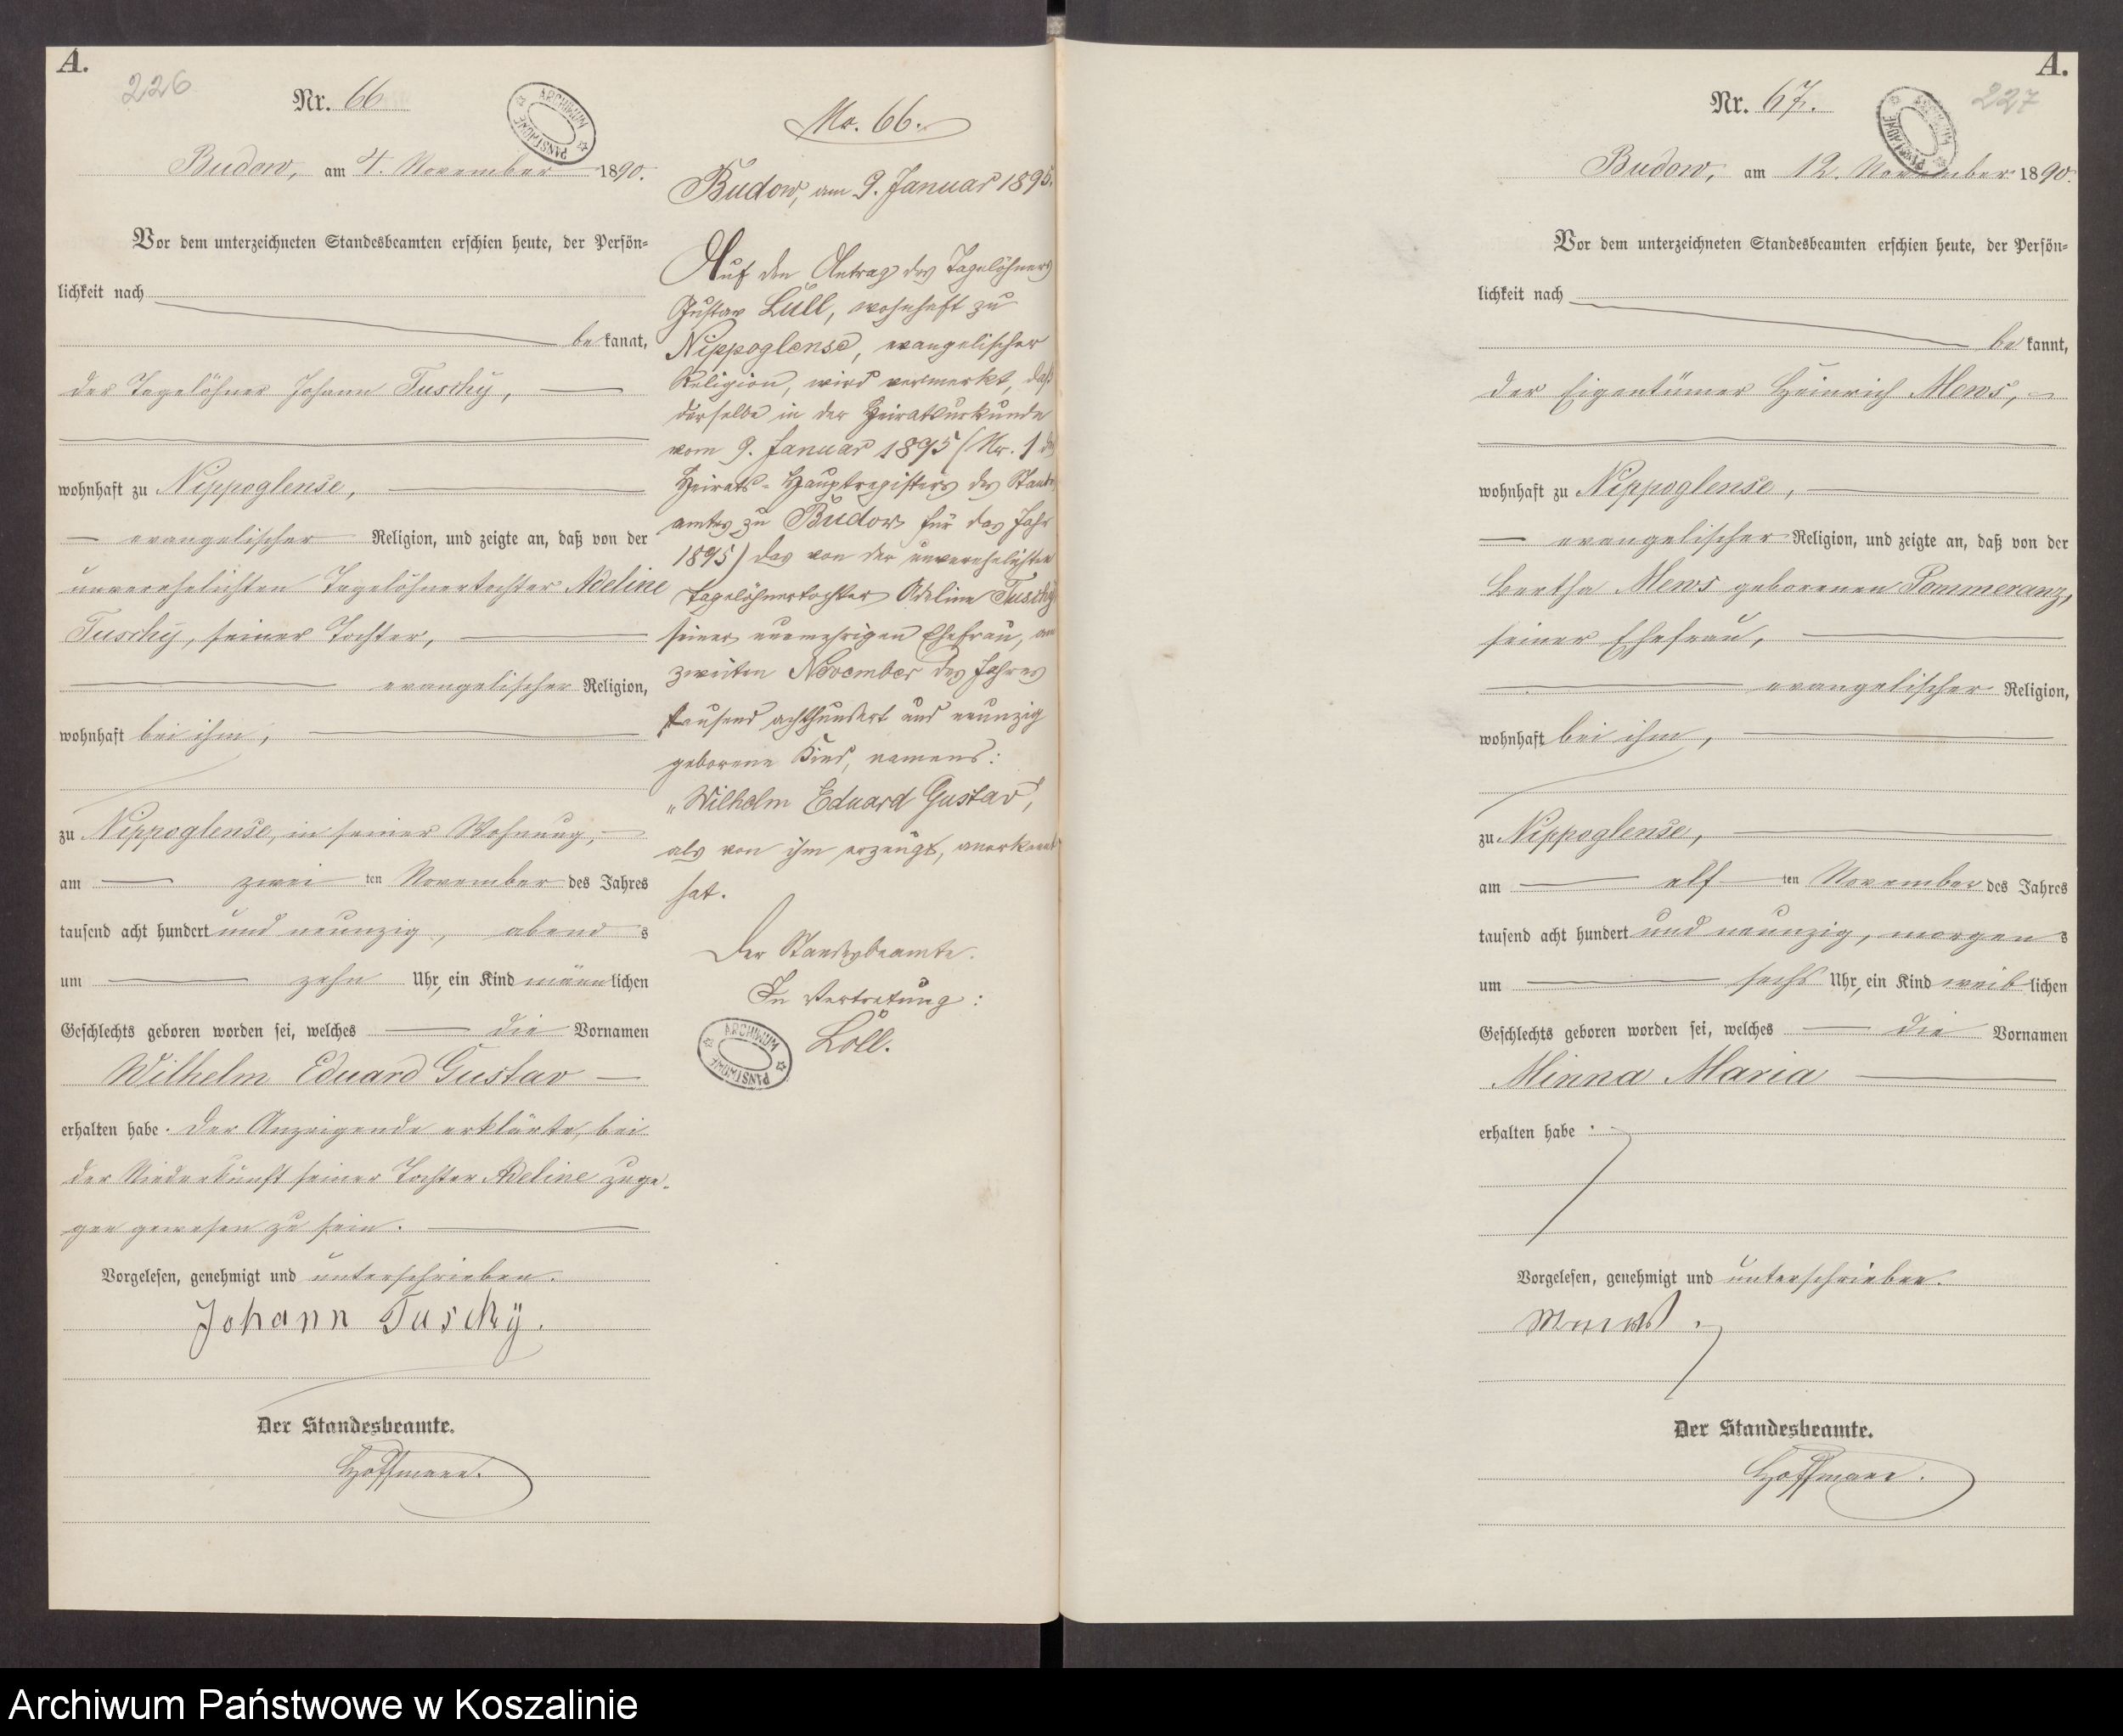 A.
226
Nr. 66
ARCHIWUM PAŃSTWOWE
Budow, am 4. November 1890.
Vor dem unterzeichneten Standesbeamten erschien heute, der Persön-
lichkeit nach
be kannt,
der Tagelöhner Johann Tuschÿ,
wohnhaft zu Nippoglense,
evangelischer Religion, und zeigte an, daß von der
unverehelichten Tagelöhnertochter Adeline
Tuschÿ, seiner Tochter,
evangelischer Religion,
wohnhaft bei ihm,
zu Nippoglense, in seiner Wohnung,
am zwei ten November des Jahres
tausend acht hundert und neunzig, abend s
um zehn Uhr, ein Kind männ lichen
Geschlechts geboren worden sei, welches die Vornamen
Wilhelm Eduard Gustav
erhalten habe. Der Anzeigende erklärte, bei
der Niederkunft seiner Tochter Adeline zuge-
gen gewesen zu sein.
Vorgelesen, genehmigt und unterschrieben.
Johann Tuschÿ.
Der Standesbeamte.
Hoffmann.
Nr. 66.
Budow, am 9. Januar 1895.
Auf den Antrag des Tagelöhners
Gustav Lüll, wohnhaft zu
Nippoglense, evangelischer
Religion, wird vermerkt, daß
derselbe in der Heiratsurkunde
vom 9. Januar 1895 (Nr. 1 des
Heirats-Hauptregisters des Standes
amtes zu Budow für das Jahr
1895) das von der unverehelichten
Tagelöhnertochter Adeline Tuschÿ
seiner nunmehrigen Ehefrau, am
zweiten November des Jahres
tausend achthundert und neunzig
geborene Kind, namens:
„Wilhelm Eduard Gustav",
als von ihm erzeugt, anerkannt
hat.
Der Standesbeamte.
In Vertretung:
Löll.
ARCHIWUM PAŃSTWOWE
A.
227
Nr. 67.
ARCHIWUM PAŃSTWOWE
Budow, am 12. November 1890.
Vor dem unterzeichneten Standesbeamten erschien heute, der Persön-
lichkeit nach
be kannt,
der Eigentümer Heinrich Mews,
wohnhaft zu Nippoglense,
evangelischer Religion, und zeigte an, daß von der
Bertha Mews geborenen Pommeranz,
seiner Ehefrau,
evangelischer Religion,
wohnhaft bei ihm,
zu Nippoglense,
am elf ten November des Jahres
tausend acht hundert und neunzig, morgen s
um sechs Uhr, ein Kind weib lichen
Geschlechts geboren worden sei, welches die Vornamen
Minna Maria
erhalten habe.
Vorgelesen, genehmigt und unterschrieben.
Der Standesbeamte.
Hoffmann.
Archiwum Państwowe w Koszalinie